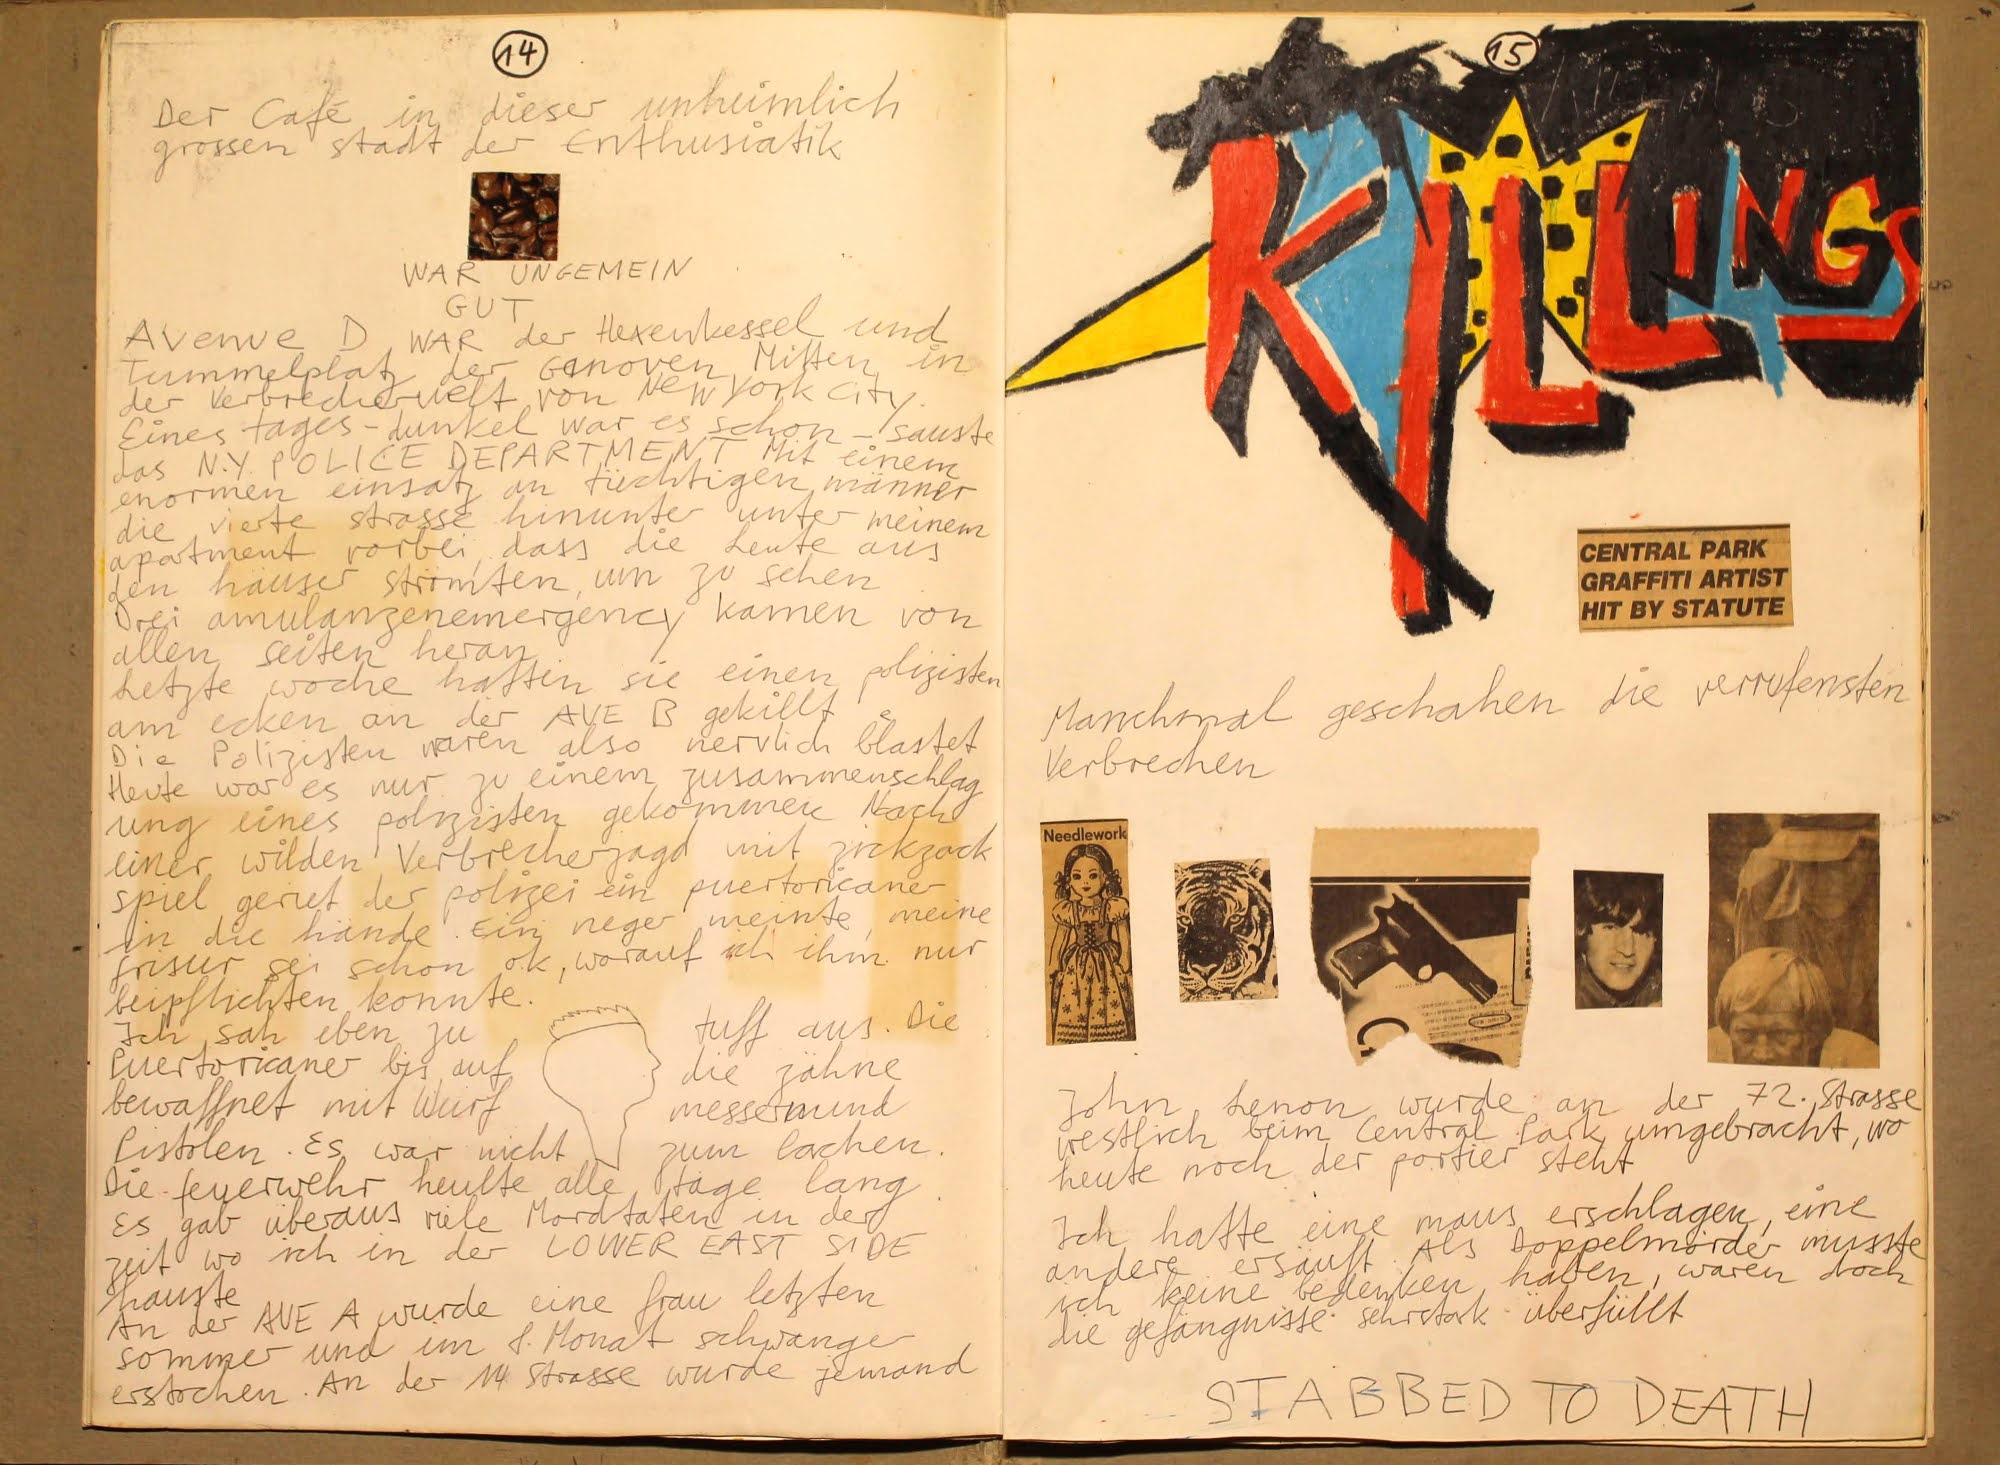 14
Der Café in dieser unheimlich
grossen stadt der Enthusiatik
WAR UNGEMEIN
GUT
Avenue D WAR der Hexenkessel und
Tummelplatz der GANOVEN Mitten in
der Verbrecherwelt von NEW YORK CiTY.
Eines tages - dunkel war es schon - sauste
das N.Y. POLICE DEPARTMENT Mit einem
enormen einsatz an tüchtigen männer
die vierte strasse hinunter unter meinem
apartment vorbei, dass die Leute aus
den häuser strömten, um zu sehen
Drei amulanzenemergency kamen von
allen seiten heran
Letzte woche hatten sie einen polizisten
am ecken an der AVE B gekillt.
Die Polizisten waren also nervlich blastet
Heute war es nur zu einem zusammenschlag
ung eines polizisten gekommen Nach
einer wilden Verbrecherjagd mit zickzack
spiel geriet der polizei ein puertoricaner
in die hände. Ein neger meinte, meine
frisur sei schon ok, worauf ich ihm nur
beipflichten konnte.
Ich sah eben zu tuff aus. Die
Puertoricaner bis auf die zähne
bewaffnet mit Wurf messern und
Pistolen. Es war nicht zum lachen.
Die feuerwehr heulte alle tage lang.
Es gab überaus viele Mordtaten in der
zeit wo ich in der LOWER EAST SIDE
hauste
An der AVE A wurde eine frau letzten
sommer und im 8. Monat schwanger
erstochen. An der 14 Strasse wurde jemand
15
KILLINGS
CENTRAL PARK
GRAFFITI ARTIST
HIT BY STATUTE
Manchmal geschahen die verrufensten
Verbrechen
Needlework
John Lenon wurde an der 72. Strasse
westlich beim Central Park umgebracht, wo
heute noch der portier steht
Ich hatte eine maus erschlagen, eine
andere ersäuft. Als Doppelmörder musste
ich keine bedenken haben, waren doch
die gefängnisse sehr stark überfüllt
STABBED TO DEATH